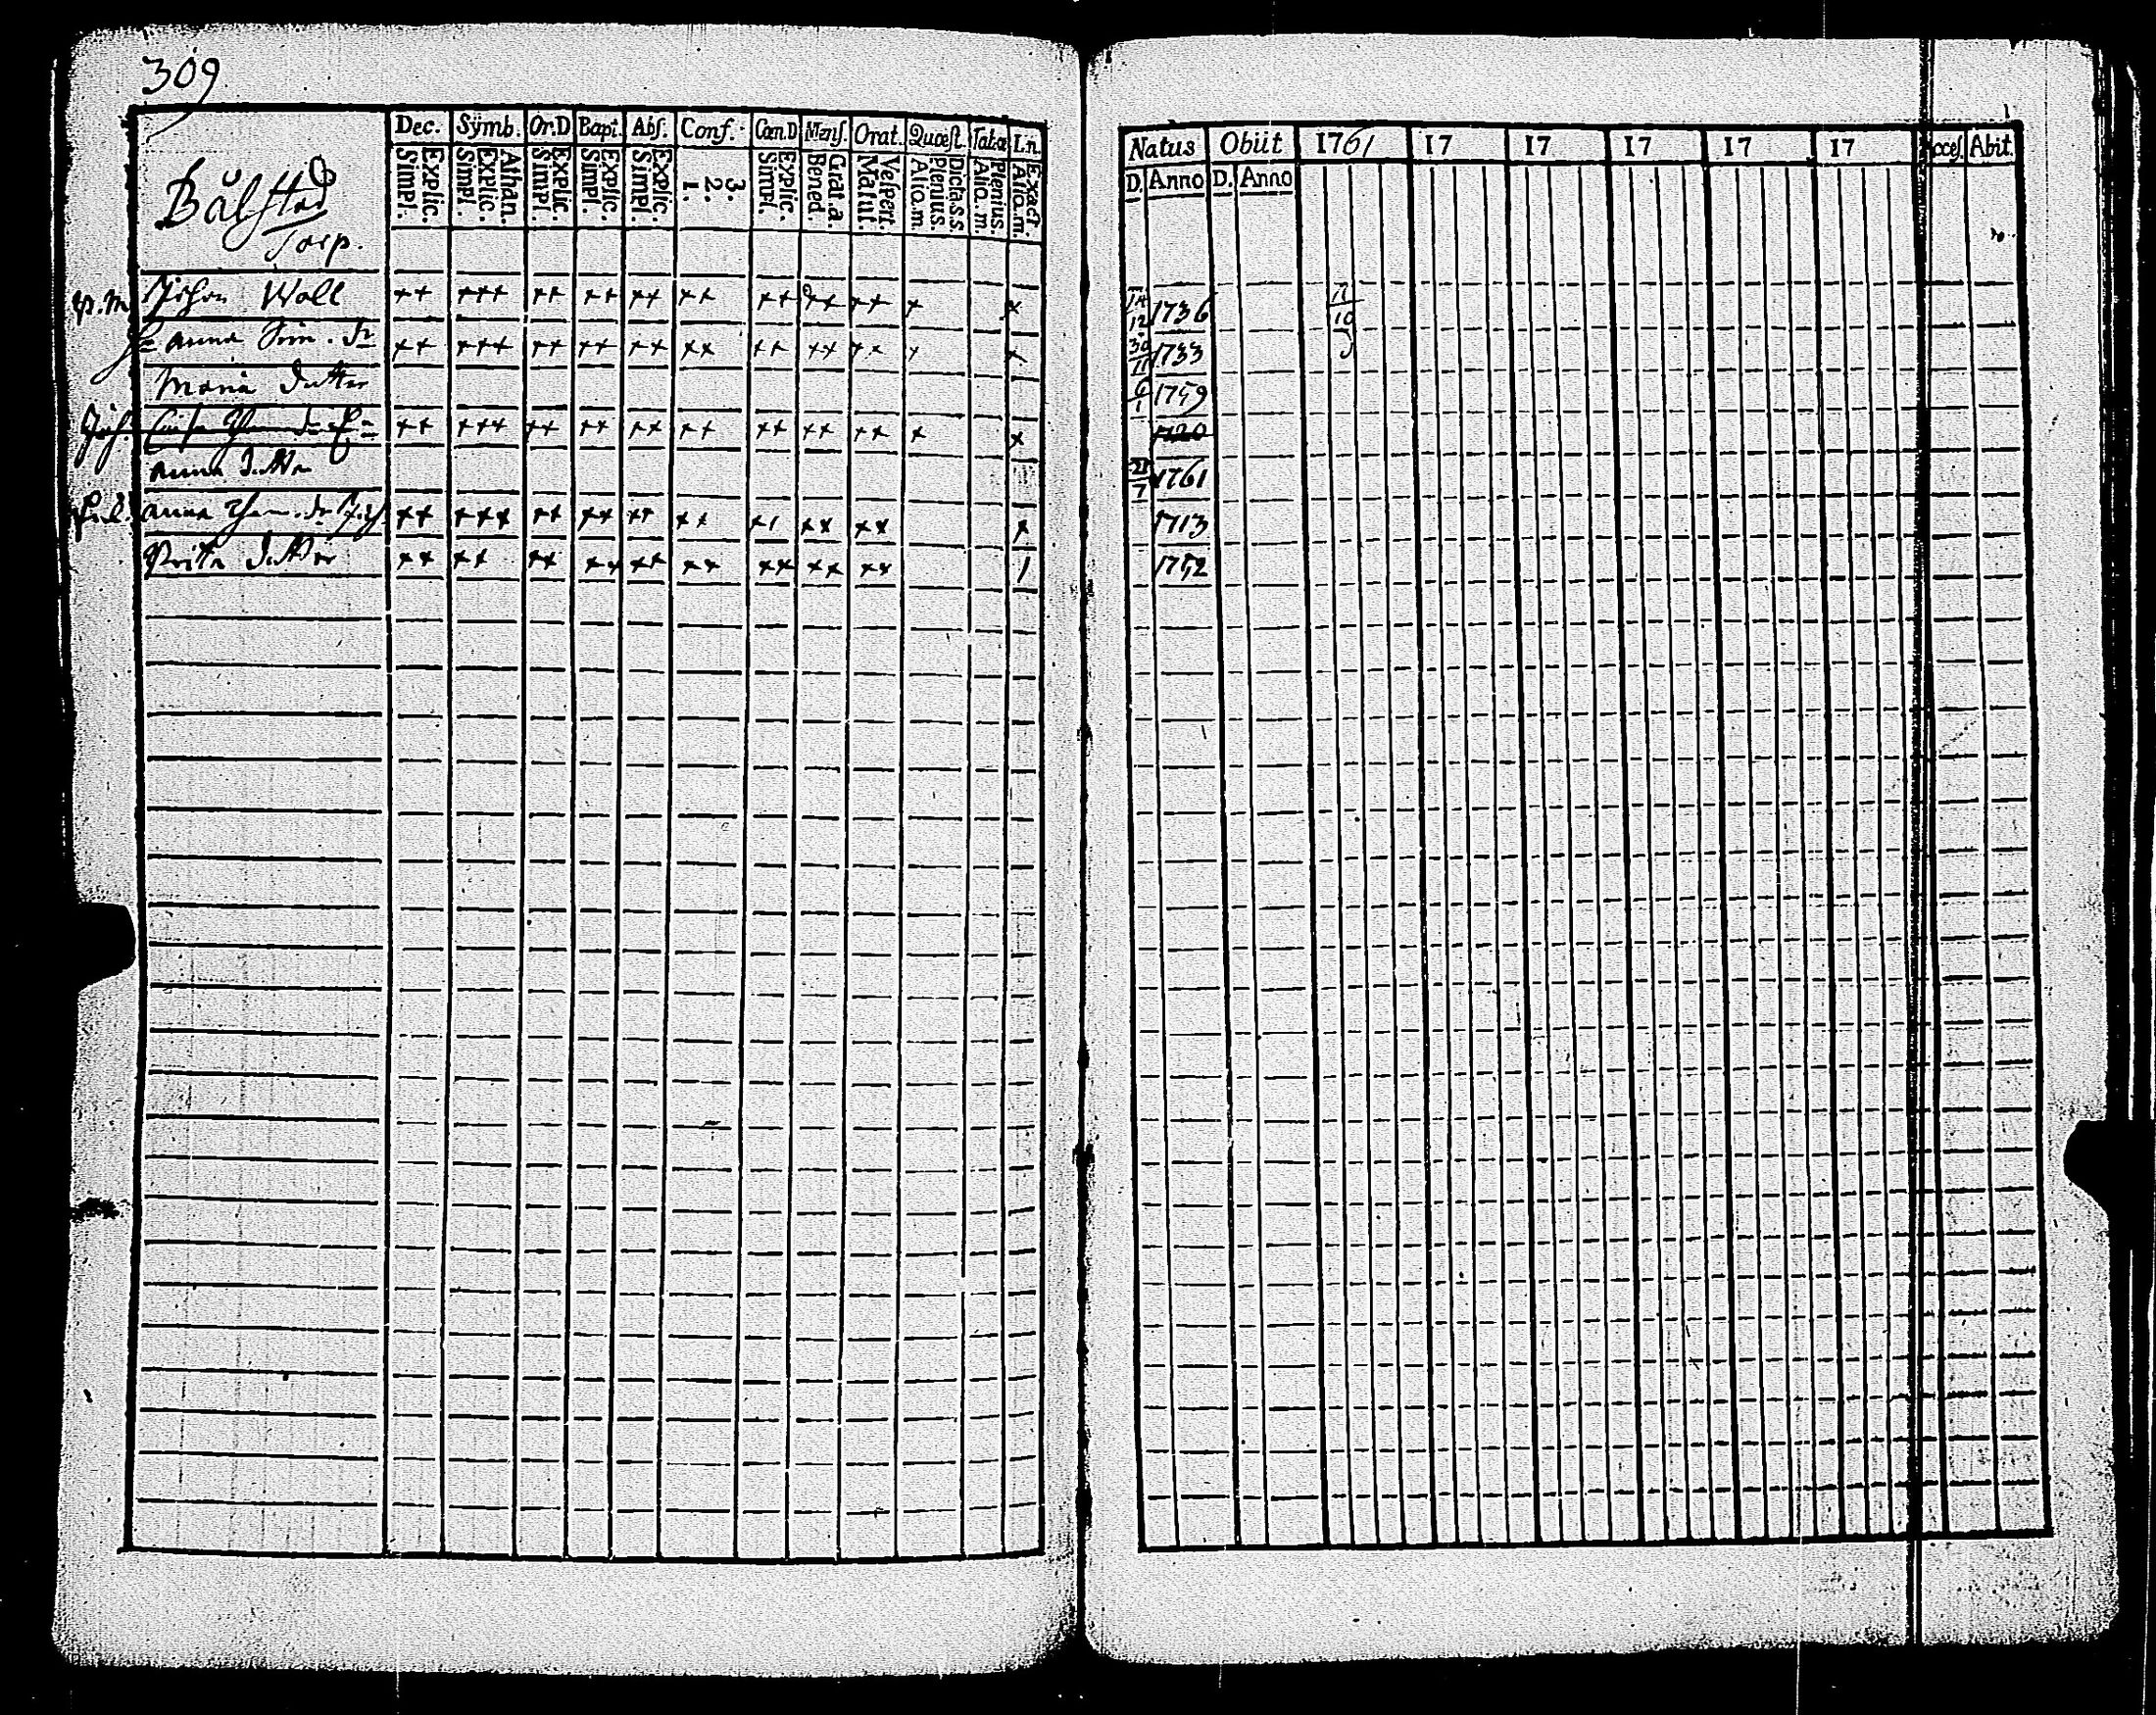 309
Dec. Symb. Or.D Bapt. Abs. Conf. Cœn.D Mens. Orat. Quæst. Tabæ Ln.
Explic. Simpl. Athan. Explic. Simpl. Explic. Simpl. Explic. Simpl. Explic. Simpl. 3. 2. 1. Explic. Simpl. Grat.a. Bened. Vespert. Matut. Dicta.s.s. Plenius. Alio.m. Plenius. Alio.m. Exact. Alio.m.
Bålstad
Torp.
Johan Wall ++ +++ ++ ++ ++ ++ ++ ++ ++ + +
Anna ++ +++ ++ ++ ++ ++ ++ ++ ++ + +
Maria dotter
++ +++ ++ ++ ++ ++ ++ ++ ++ + +
Anna dotter
Anna ++ +++ ++ ++ ++ ++ +1 ++ ++ +
Brita dotter ++ ++ ++ ++ ++ ++ ++ ++ ++ 1
Natus Obiit 1761 17 17 17 17 17 Acces. Abit.
D. Anno D. Anno
14/12 1736 11/10
30/11 1733
6/1 1759
1720
21/7 1761
1713
1752